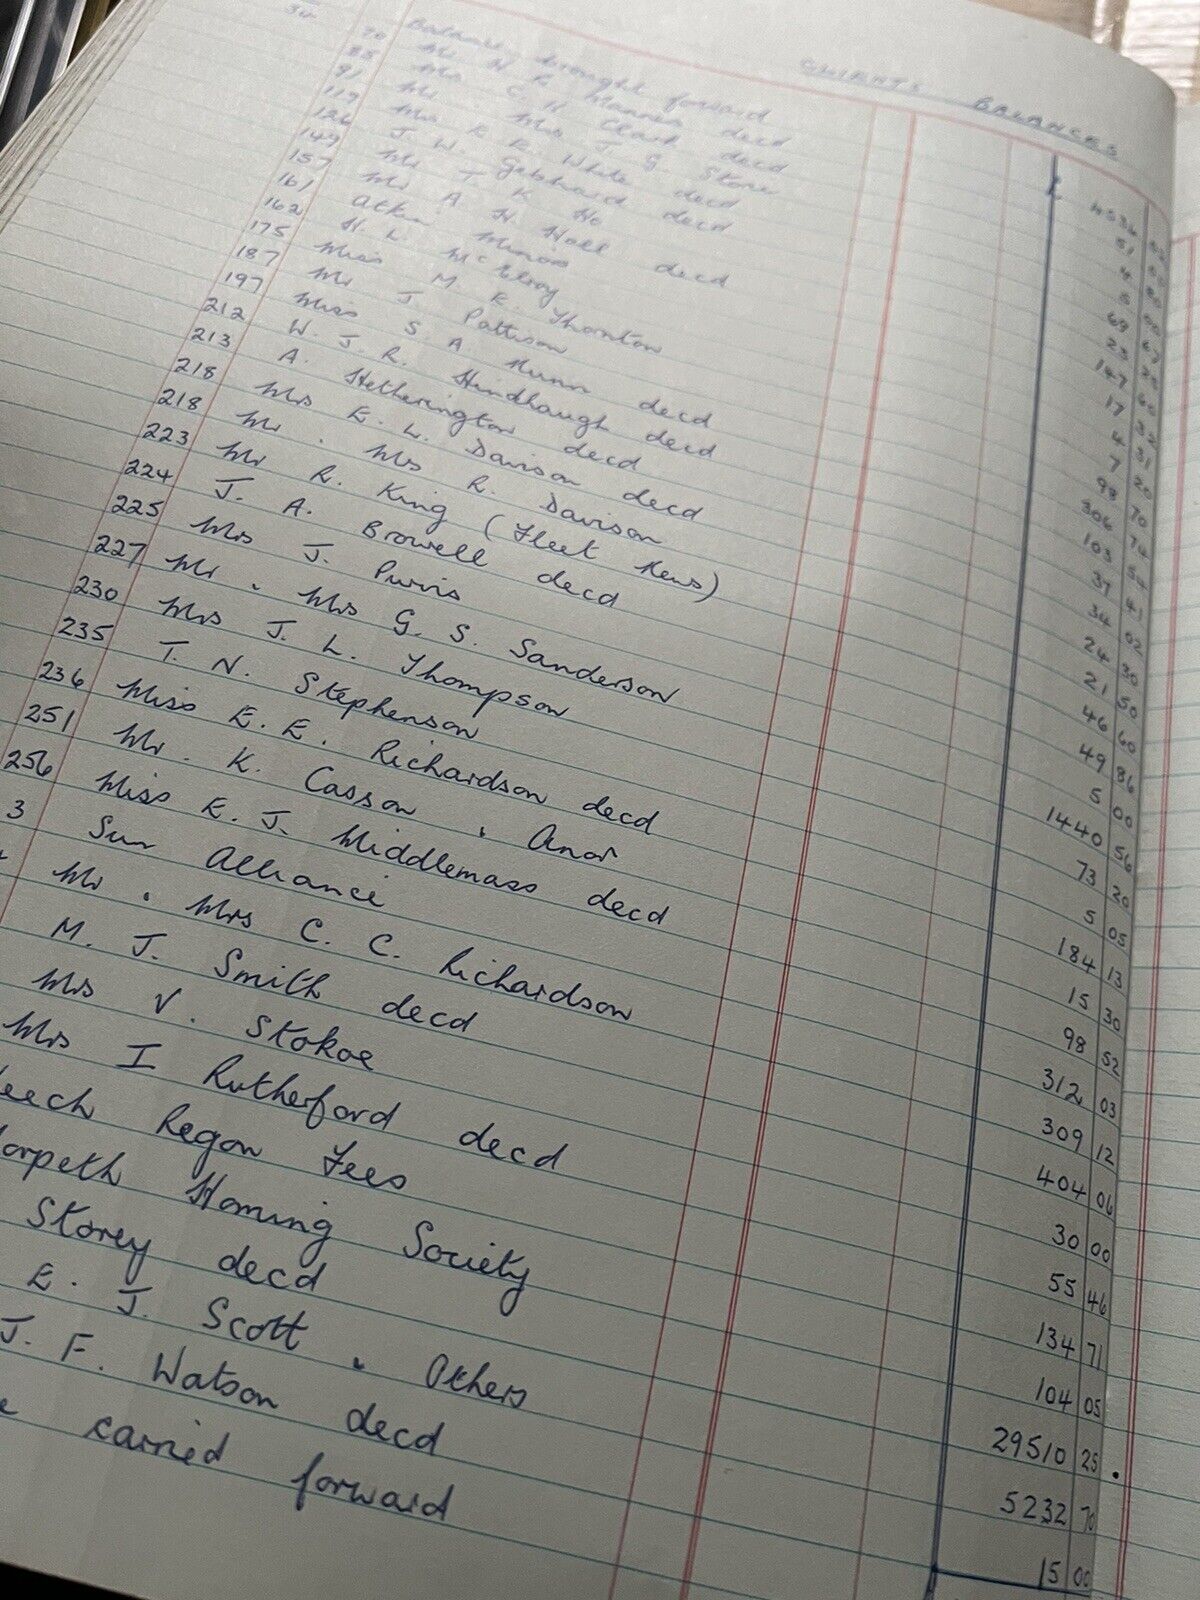 CLIENTS BALANCES
£
Balance brought forward 4534
70 Mr N E Manners decd 51
85 Mrs C H Clark decd 4
91 Mr . Mrs J G Stone 6 00
119 Mrs E E White decd 69 67
126 J W Gebhard decd 23 25
149 Mr T K Ho 147 60
157 Mr A H Hall decd 17 32
161 Minors 4 31
162 H L McElroy 7 20
175 Miss M E Thornton 98 70
187 Mr J Pattison 306 74
197 Miss S A Munn decd 103 54
212 W. J. R. Hindhaugh decd 37 41
213 A. Hetherington decd 34 02
218 Mrs E. L. Davison decd 24 30
218 Mr . Mrs R. Davison 21 50
223 Mr R. King (Fleet News) 46 60
224 J. A. Browell decd 49 86
225 Mrs J. Purvis 5 00
227 Mr . Mrs G. S. Sanderson 1440 56
230 Mrs J. L. Thompson 73 20
235 T. N. Stephenson 5 05
236 Miss E. E. Richardson decd 184 13
251 Mr . K. Casson . Anor 15 30
256 Miss E. J. Middlemass decd 98 52
3 Sun Alliance 312 03
Mr . Mrs C. C. Richardson 309 12
M. J. Smith decd 404 06
Mrs V. Stokoe 30 00
Mrs I Rutherford decd 55 46
eech Regon Fees 134 71
orpeth Homing Society 104 05
Storey decd 29510 25 .
E. J. Scott . Others 5232 70
J. F. Watson decd 15 00
e carried forward